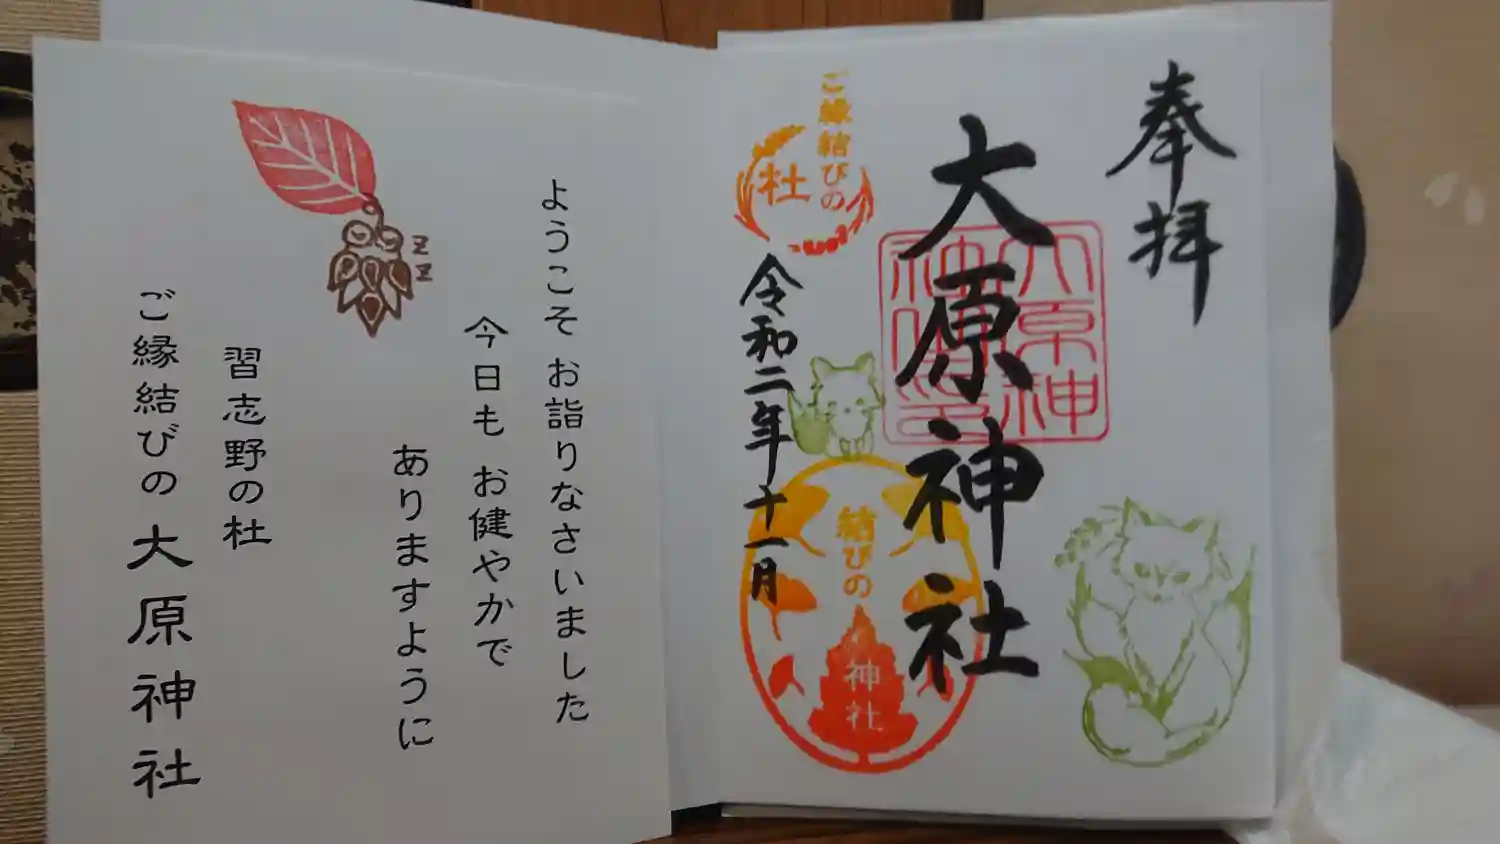 奉拝
大原神社
大原神
社
ご縁結びの
杜
令和二年十一月
結びの
神社
ようこそ お詣りなさいました
今日も お健やかで
ありますように
習志野の杜
ご縁結びの 大原神社
zz